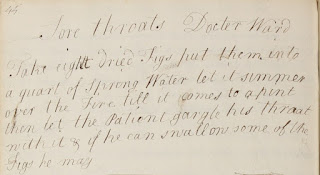 44
Sore throats Docter Ward
Take eight dried Figs put them into
a quart of Spring Water let it simmer
over the Fire till it comes to a pint
then let the Patient gargle his throat
with it & if he can swallow some of the
Figs he may